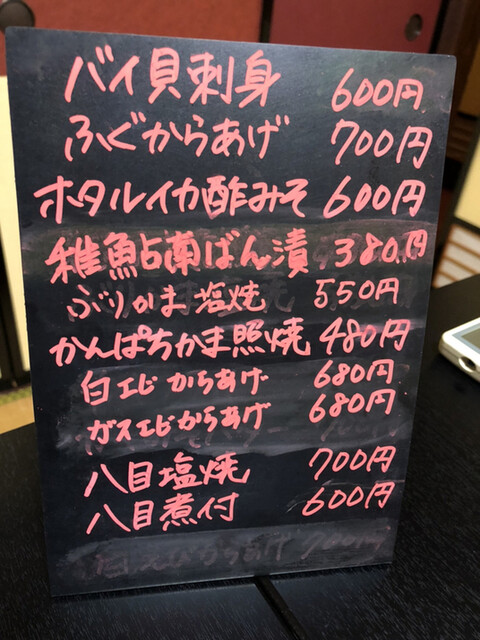 バイ貝刺身 600円
ふぐからあげ 700円
ホタルイカ酢みそ 600円
稚鮎南ばん漬 380円
ぶりかま塩焼 550円
かんぱちかま照焼 480円
白エビからあげ 680円
ガスエビからあげ 680円
八目塩焼 700円
八目煮付 600円